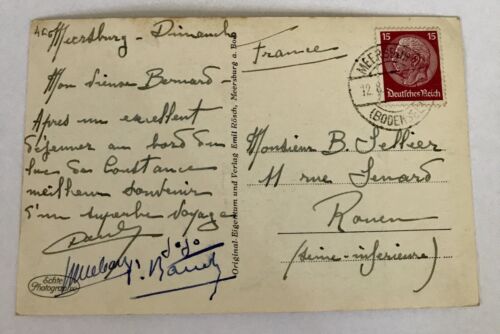 Meersburg - Dimanche
Mon vieux Bernard -
Après un excellent
déjeuner au bord du
lac de Constance
meilleur souvenir
d'un superbe voyage
Paul
Jojo
Echte
Photographie
Original-Eigentum und Verlag Emil Rösch, Meersburg a. Bod.
France
15 15
Deutsches Reich
MEERSBURG
12.
(BODENSEE)
Monsieur B. Sellier
11 rue Senard
Rouen
(Seine-inférieure)